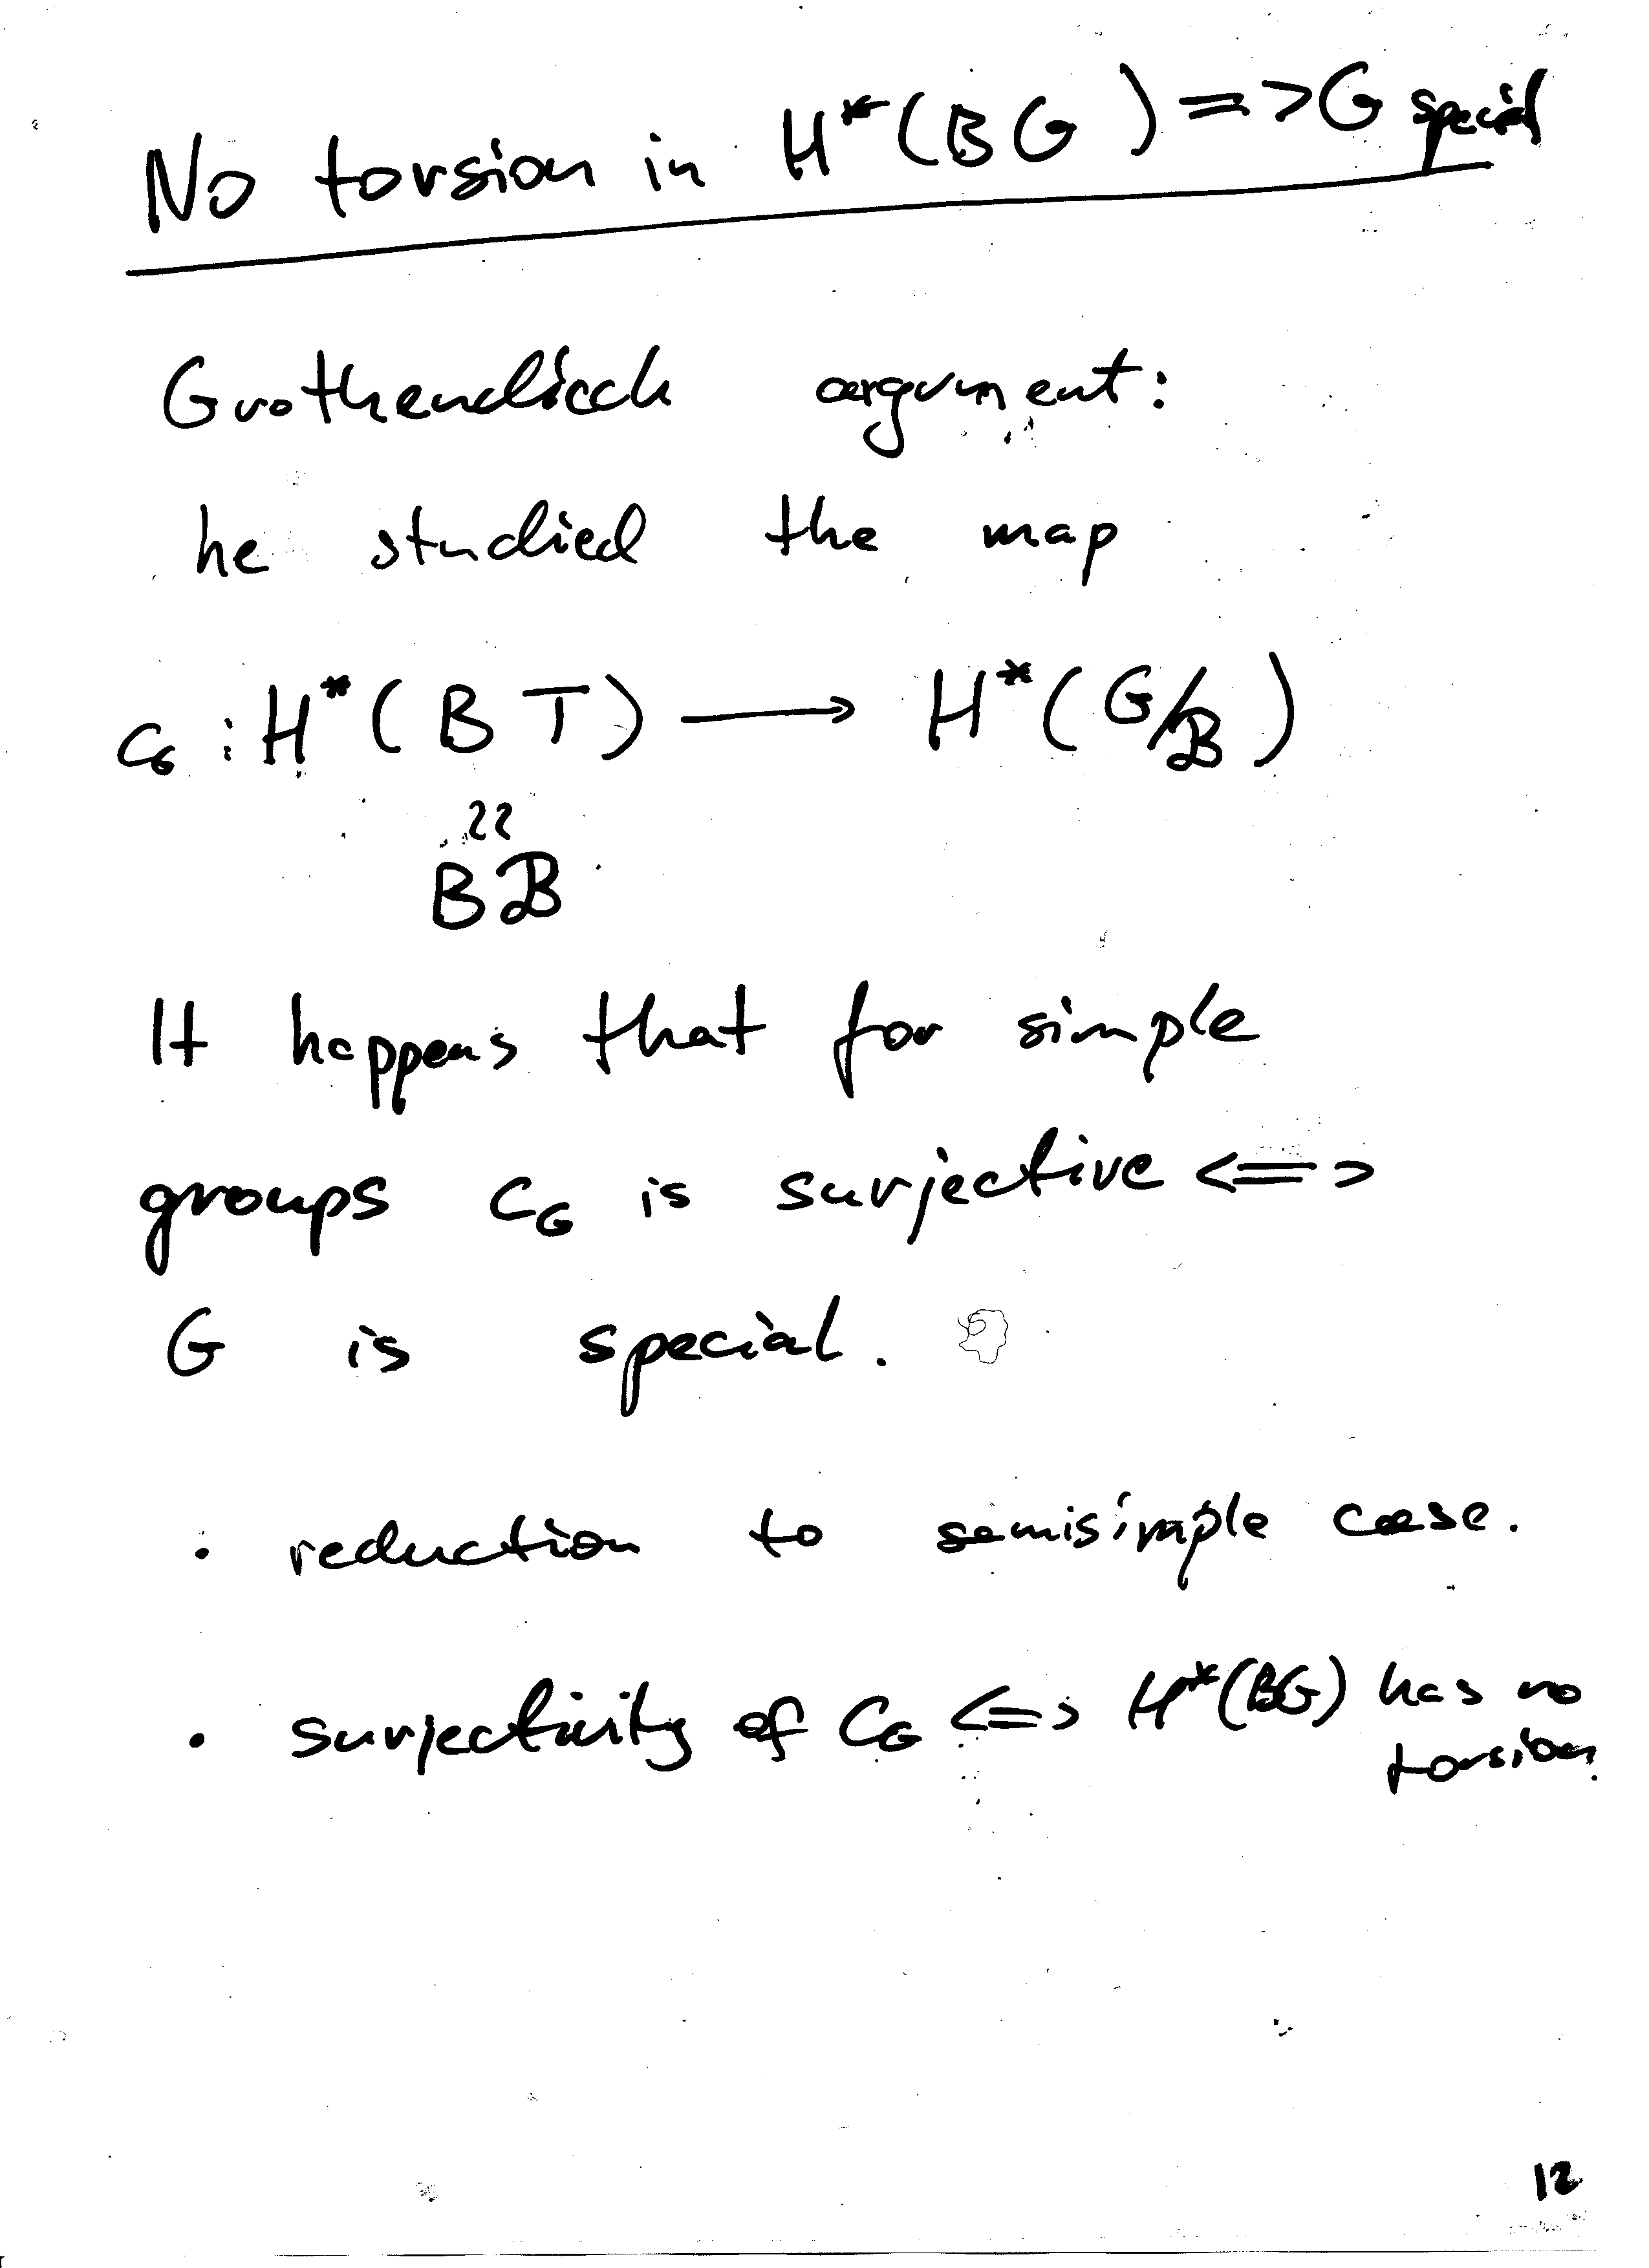 No torsion in H*(BG) => G special
Grothendieck argument:
he studied the map
c_G : H*(BT) ⟶ H*(G/ℬ)
≀≀
Bℬ
It happens that for simple
groups c_G is surjective <=>
G is special.
· reduction to semisimple case.
· surjectivity of C_G <=> H*(BG) has no
torsion.
12